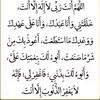 اللَّهُمَّ أَنْتَ رَبِّي لَا إِلَهَ إِلَّا أَنْتَ،
خَلَقْتَنِي وَأَنَا عَبْدُكَ، وَأَنَا عَلَى عَهْدِكَ
وَوَعْدِكَ مَا اسْتَطَعْتُ، أَعُوذُ بِكَ مِنْ
شَرِّ مَا صَنَعْتُ، أَبُوءُ لَكَ بِنِعْمَتِكَ عَلَيَّ،
وَأَبُوءُ لَكَ بِذَنْبِي، فَاغْفِرْ لِي، فَإِنَّهُ
لَا يَغْفِرُ الذُّنُوبَ إِلَّا أَنْتَ